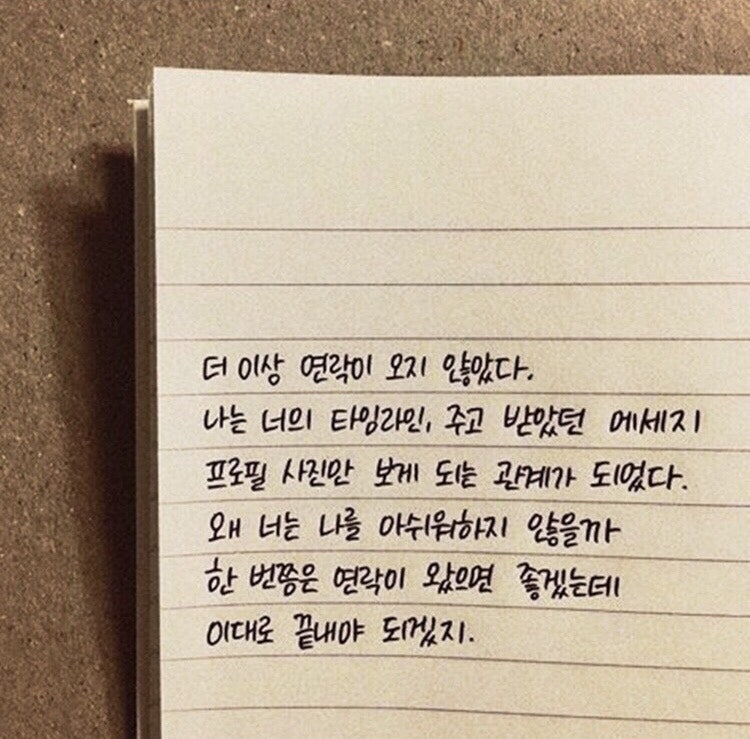 더 이상 연락이 오지 않았다.
나는 너의 타임라인, 주고 받았던 메세지
프로필 사진만 보게 되는 관계가 되었다.
왜 너는 나를 아쉬워하지 않을까
한 번쯤은 연락이 왔으면 좋겠는데
이대로 끝내야 되겠지.